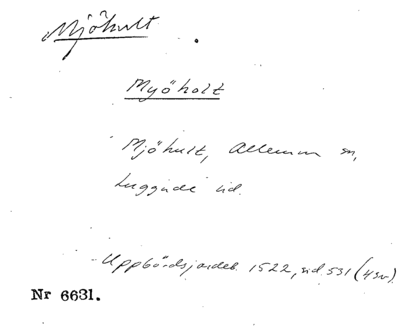 Mjöhult
Myöholt
Mjöhult, Allerum sn,
Luggude hd.
Uppbördsjordeb. 1522, sid 531 (4 sv).
Nr 6631.